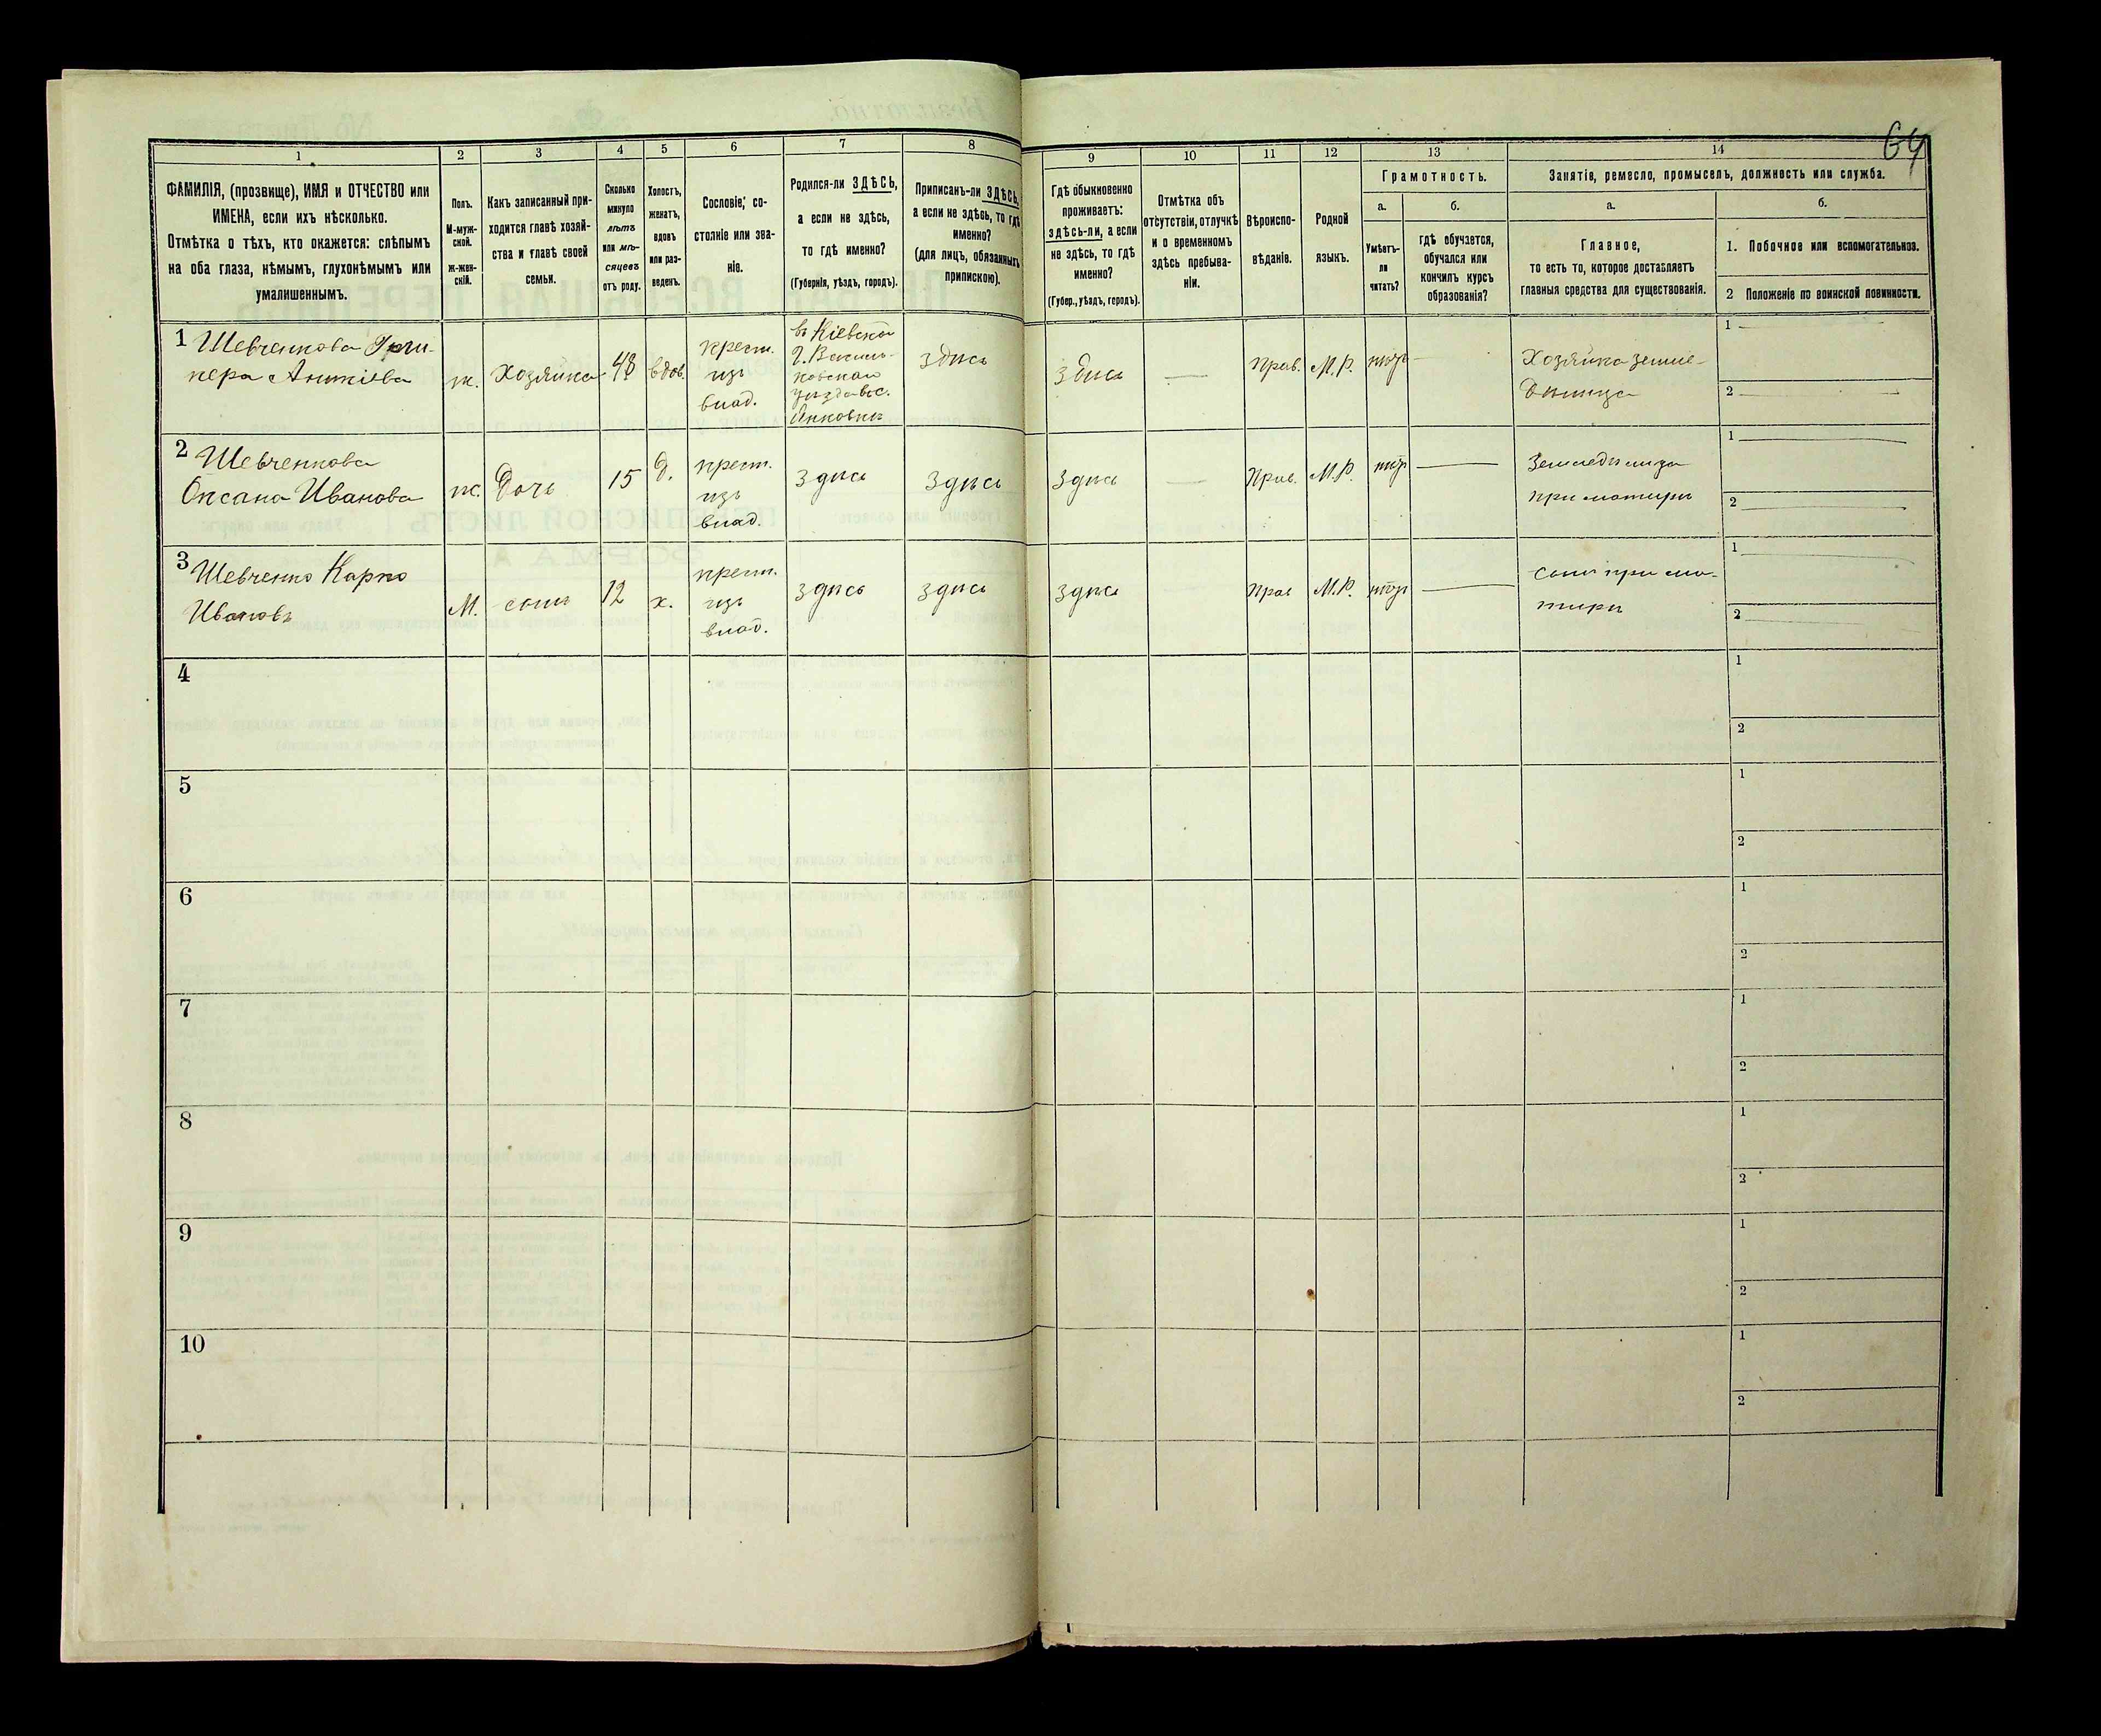 64
1
2
3
4
5
6
7
8
9
10
11
12
13
14
ФАМИЛІЯ, (прозвище), ИМЯ и ОТЧЕСТВО или
ИМЕНА, если ихъ нѣсколько.
Отмѣтка о тѣхъ, кто окажется: слѣпымъ
на оба глаза, нѣмымъ, глухонѣмымъ или
умалишеннымъ.
Полъ.
М-муж-
ской.
ж-жен-
скій.
Какъ записанный при-
ходится главѣ хозяй-
ства и главѣ своей
семьи.
Сколько
минуло
лѣтъ
или мѣ-
сяцевъ
отъ роду.
Холостъ,
женатъ,
вдовъ
или раз-
веденъ.
Сословіе, со-
стояніе или зва-
ніе.
Родился-ли ЗДѢСЬ,
а если не здѣсь,
то гдѣ именно?
(Губернія, уѣздъ, городъ).
Приписанъ-ли ЗДѢСЬ,
а если не здѣсь, то гдѣ
именно?
(для лицъ, обязанныхъ
припискою).
Гдѣ обыкновенно
проживаетъ:
здѣсь-ли, а если
не здѣсь, то гдѣ
именно?
(Губер., уѣздъ, городъ).
Отмѣтка объ
отсутствіи, отлучкѣ
и о временномъ
здѣсь пребыва-
ніи.
Вѣроиспо-
вѣданіе.
Родной
языкъ.
Грамотность.
а.
б.
Умѣетъ-
ли
читать?
гдѣ обучается,
обучался или
кончилъ курсъ
образованія?
Занятіе, ремесло, промыселъ, должность или служба.
а.
б.
Главное,
то есть то, которое доставляетъ
главныя средства для существованія.
1. Побочное или вспомогательное.
2 Положеніе по воинской повинности.
1 Шевченкова
ж.
Хозяйка
48
вдов.
крест.
изъ
влад.
въ Кіевской
Г. Василь-
ковскаго
уѣзда в с.
здѣсь
здѣсь
Прав.
М.Р.
нѣтъ
Хозяйка земле-
дѣлица
1
2
2 Шевченкова
Оксана Иванова
ж.
Дочь
15
д.
крест.
изъ
влад.
здѣсь
здѣсь
здѣсь
Прав.
М.Р.
нѣтъ
Земледѣлица
при матери
1
2
3 Шевченко Карпо
Ивановъ
М.
сынъ
12
х.
крест.
изъ
влад.
здѣсь
здѣсь
здѣсь
Прав
М.Р.
нѣтъ
сынъ при ма-
тери
1
2
4
1
2
5
1
2
6
1
2
7
1
2
8
1
2
9
1
2
10
1
2